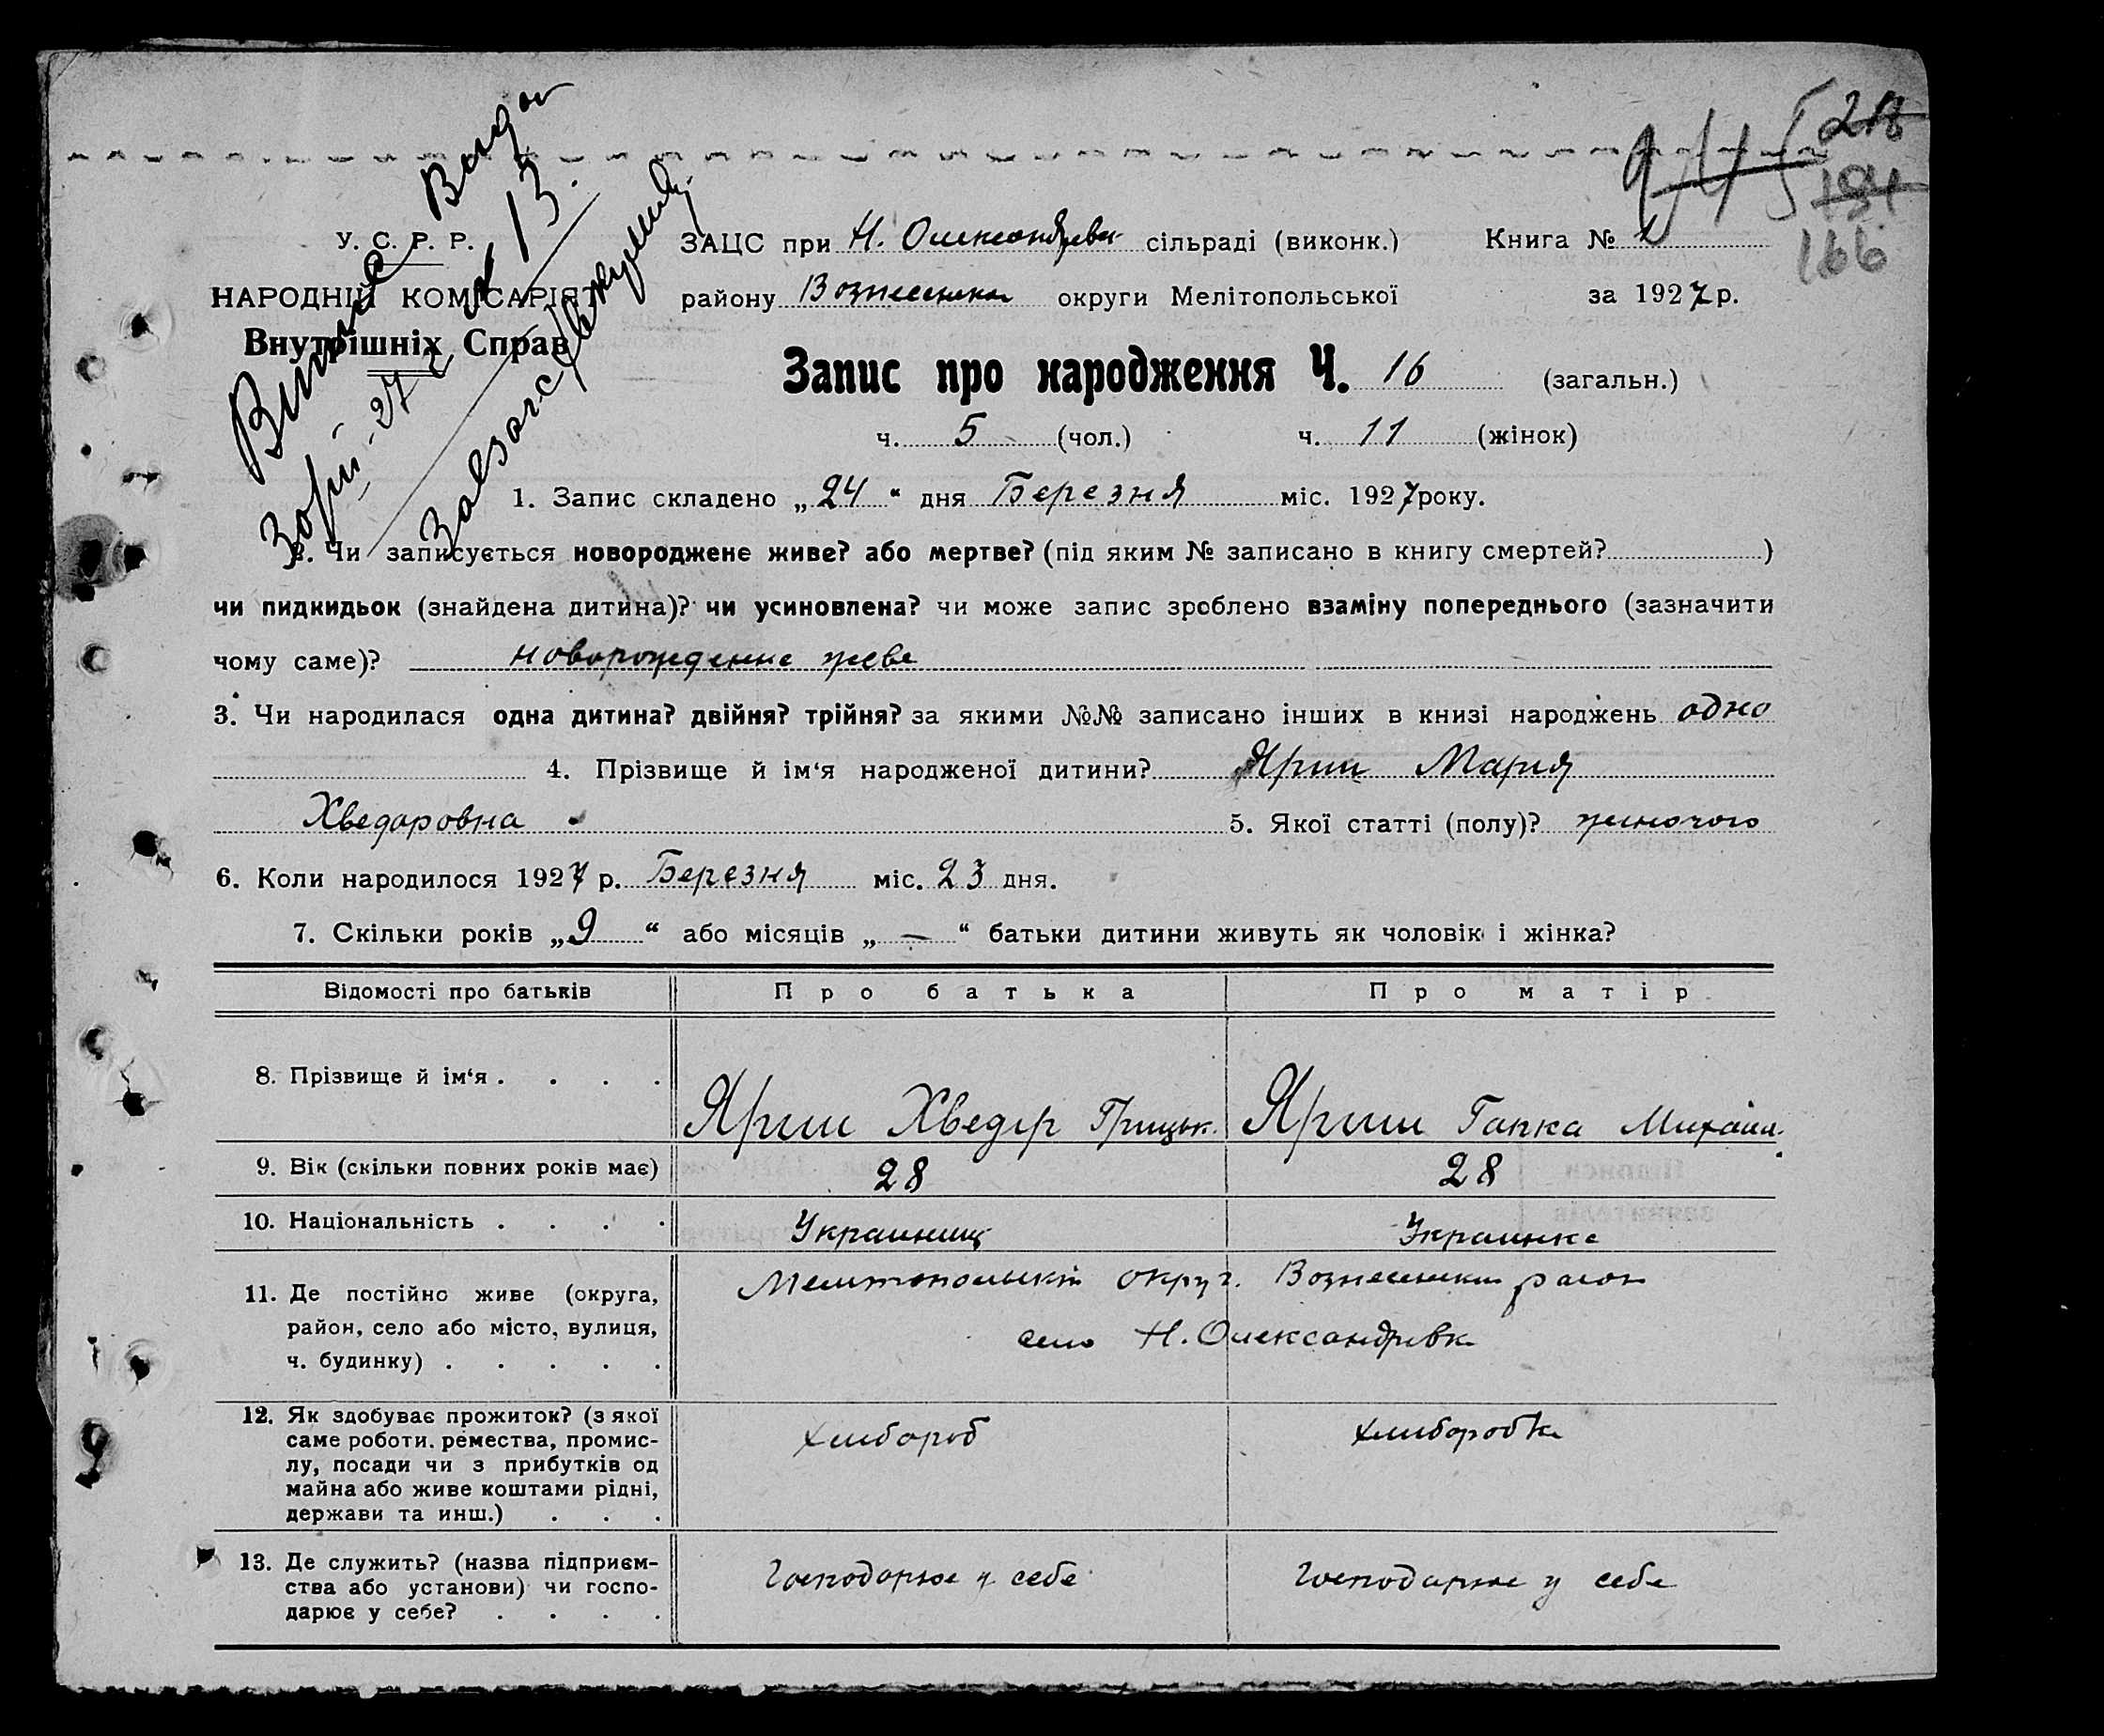 У. С. Р. Р.
НАРОДНІЙ КОМІСАРІЯТ
Внутрішніх Справ
166
ЗАЦС при Н. Олександрівск сільраді (виконк.) Книга №
району Вознесенськ округи Мелітопольської за 1927 р.
Запис про народження Ч. 16 (загальн.)
ч. 5 (чол.) ч. 11 (жінок)
1. Запис складено „24“ дня Березня міс. 1927 року.
2. Чи записується новороджене живе? або мертве? (під яким № записано в книгу смертей? )
чи пидкидьок (знайдена дитина)? чи усиновлена? чи може запис зроблено взаміну попереднього (зазначити
чому саме)? новорожденне живе
3. Чи народилася одна дитина? двійня? трійня? за якими №№ записано інших в книзі народжень одно
4. Прізвище й ім‘я народженої дитини? Яриш Мария
Хведоровна 5. Якої статті (полу)? жиночого
6. Коли народилося 1927 р. Березня міс. 23 дня.
7. Скільки років „9“ або місяців „—“ батьки дитини живуть як чоловік і жінка?
Відомості про батьків Про батька Про матір
8. Прізвище й ім‘я . . . . Яриш Хведір Грицьк. Яриш Гапка Михайл.
9. Вік (скільки повних років має) 28 28
10. Національність . . . . Украинець Украинка
11. Де постійно живе (округа, Мелитопольский округ. Вознесенський район
район, село або місто, вулиця, село Н. Олександрівк
ч. будинку) . . . . .
12. Як здобуває прожиток? (з якої хлибороб хлиборобка
саме роботи. ремества, промис-
лу, посади чи з прибутків од
майна або живе коштами рідні,
держави та инш.) . . .
13. Де служить? (назва підприєм- Господарює у себе Господарює у себе
ства або установи) чи госпо-
дарює у себе? . . . .